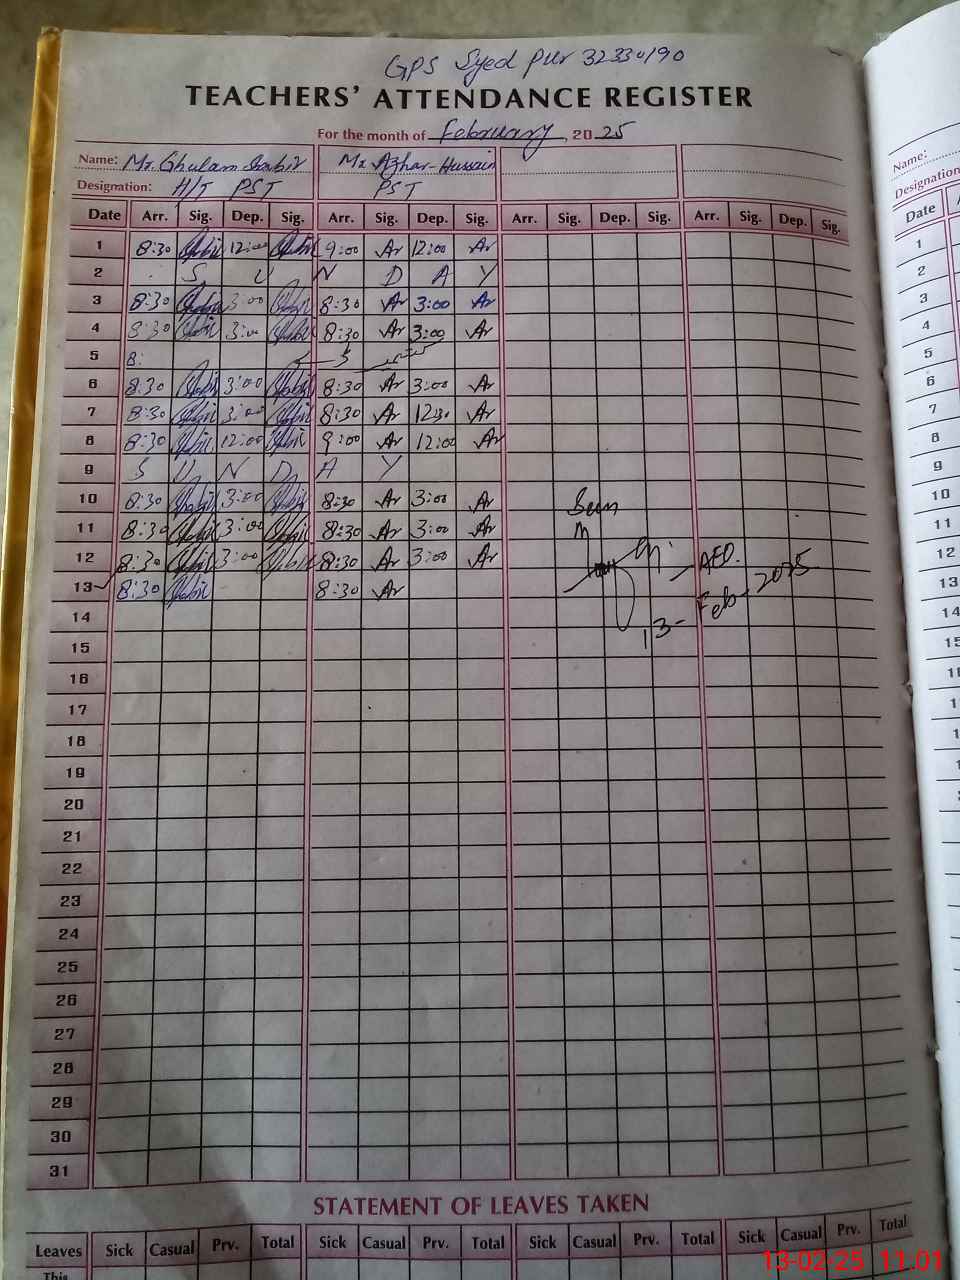 GPS Syed pur 32330190
TEACHERS' ATTENDANCE REGISTER
For the month of February, 2025
Name: Mr. Ghulam Shabir Mr Azhar Hussain
Designation: H/T PST PST
Date Arr. Sig. Dep. Sig. Arr. Sig. Dep. Sig. Arr. Sig. Dep. Sig. Arr. Sig. Dep. Sig.
1 8:30 12:00 9:00 Ar 12:00 Ar
2 S U N D A Y
3 8:30 3:00 8:30 Ar 3:00 Ar
4 8:30 3:00 8:30 Ar 3:00 Ar
5 8:
6 8:30 3:00 8:30 Ar 3:00 Ar
7 8:30 3:00 8:30 Ar 12:30 Ar
8 8:30 12:00 9:00 Ar 12:00 Ar
9 S U N D A Y
10 8:30 3:00 8:30 Ar 3:00 Ar
11 8:30 3:00 8:30 Ar 3:00 Ar
12 8:30 3:00 8:30 Ar 3:00 Ar
13 8:30 8:30 Ar
AEO.
13-Feb-2025
14
15
16
17
18
19
20
21
22
23
24
25
26
27
28
29
30
31
STATEMENT OF LEAVES TAKEN
Leaves Sick Casual Prv. Total Sick Casual Prv. Total Sick Casual Prv. Total Sick Casual Prv. Total
This
13-02-25 11.01
Name:
Designation
Date
1
2
3
4
5
6
7
8
9
10
11
12
13
14